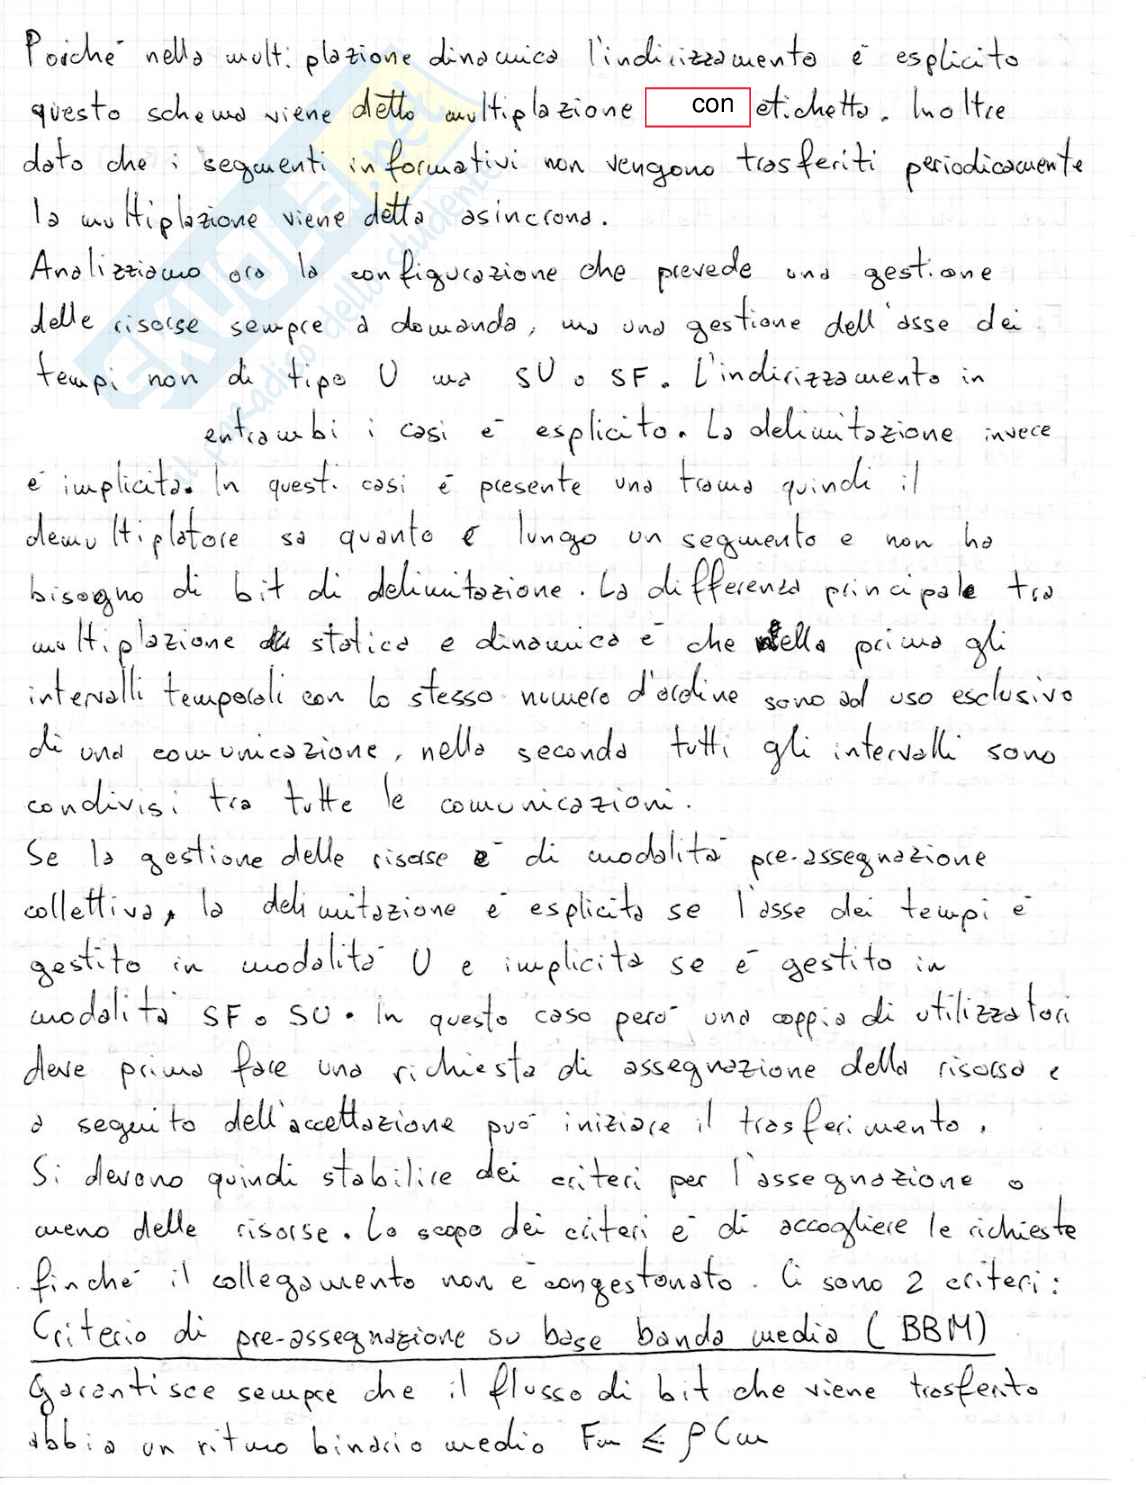 Poiché nella multiplazione dinamica l'indirizzamento è esplicito
questo schema viene detto multiplazione con etichetta. Inoltre
dato che i segmenti informativi non vengono trasferiti periodicamente
la multiplazione viene detta asincrona.
Analizziamo ora la configurazione che prevede una gestione
delle risorse sempre a domanda, ma una gestione dell'asse dei
tempi non di tipo U ma SU o SF. L'indirizzamento in
entrambi i casi è esplicito. La delimitazione invece
è implicita. In questi casi è presente una trama quindi il
demultiplatore sa quanto è lungo un segmento e non ha
bisogno di bit di delimitazione. La differenza principale tra
multiplazione statica e dinamica è che nella prima gli
intervalli temporali con lo stesso numero d'ordine sono ad uso esclusivo
di una comunicazione, nella seconda tutti gli intervalli sono
condivisi tra tutte le comunicazioni.
Se la gestione delle risorse è di modalità pre-assegnazione
collettiva, la delimitazione è esplicita se l'asse dei tempi è
gestito in modalità U e implicita se è gestito in
modalità SF o SU. In questo caso però una coppia di utilizzatori
deve prima fare una richiesta di assegnazione della risorsa e
a seguito dell'accettazione può iniziare il trasferimento.
Si devono quindi stabilire dei criteri per l'assegnazione o
meno delle risorse. Lo scopo dei criteri è di accogliere le richieste
finché il collegamento non è congestonato. Ci sono 2 criteri:
Criterio di pre-assegnazione su base banda media (BBM)
Garantisce sempre che il flusso di bit che viene trasferito
abbia un ritmo binario medio Fm ≤ ρ Cm
SKUOLA.net
il paradiso dello studente